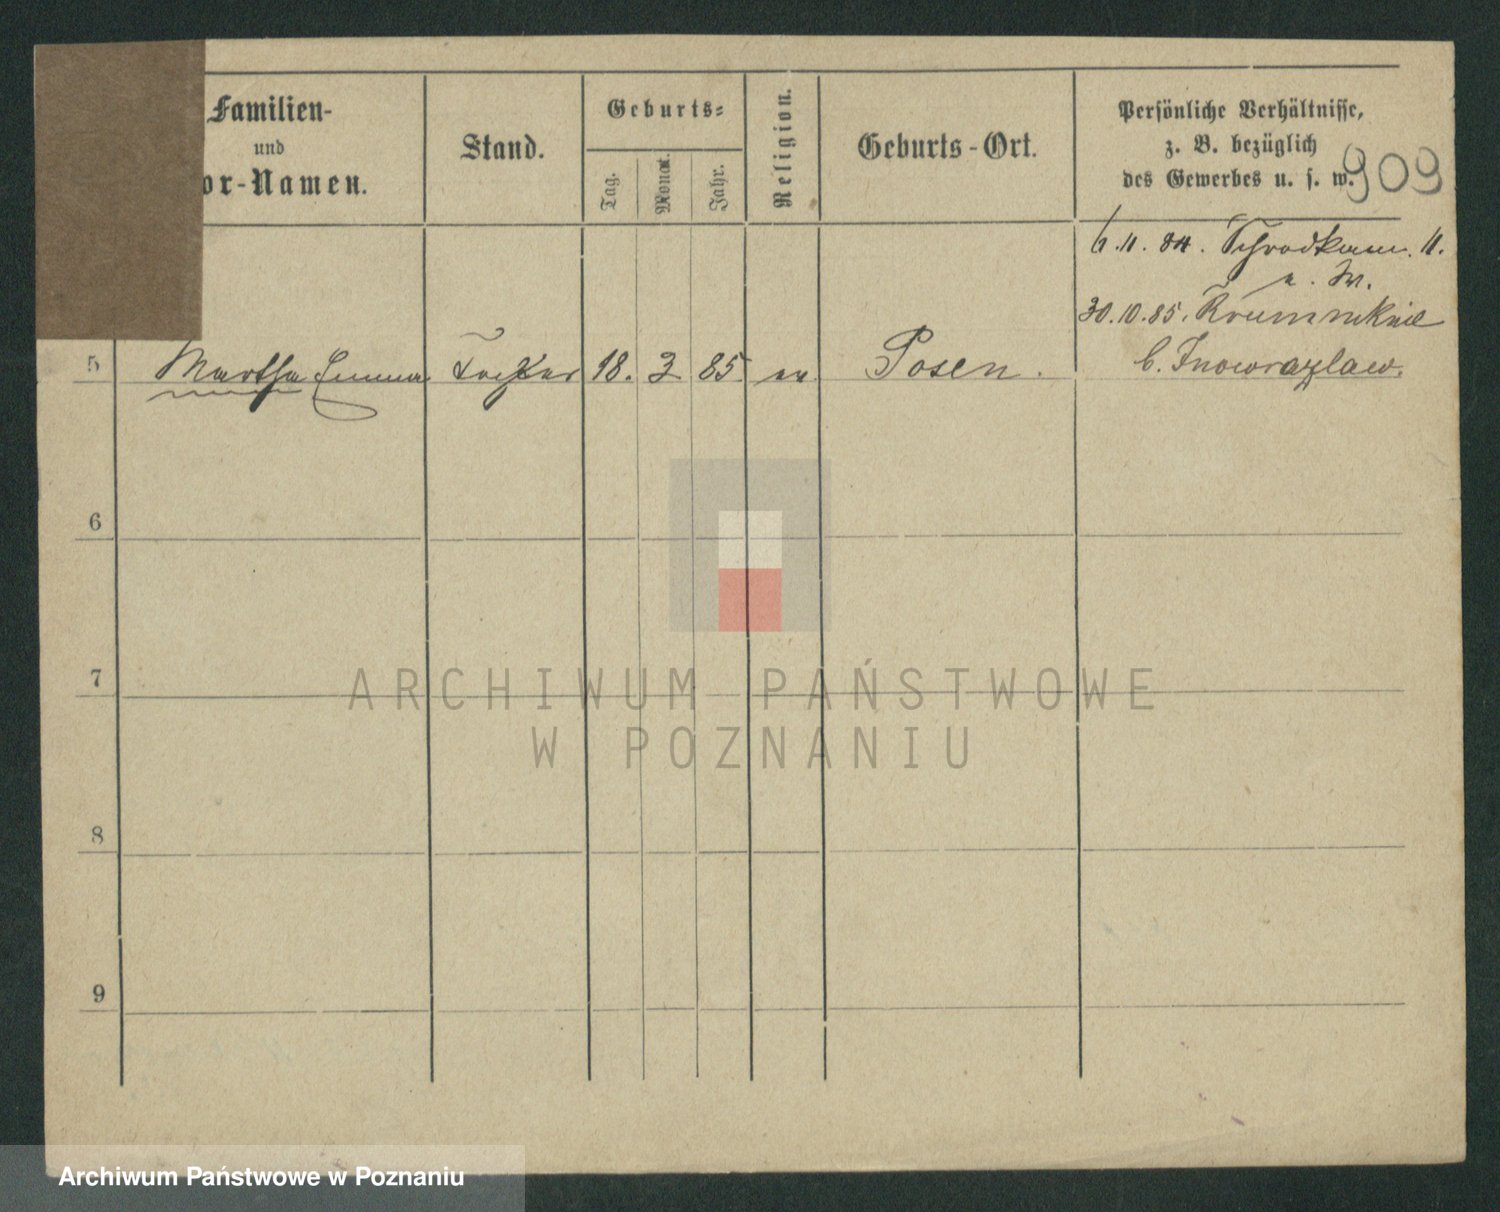 Familien-
und
or-Namen.
Stand.
Geburts-
Tag.
Monat.
Jahr.
Religion.
Geburts-Ort.
Persönliche Verhältnisse,
z. B. bezüglich
des Gewerbes u. s. w.
909
6.11.84. 11.
30.10.85.
5 Martha Emma Tochter 18. 3 85. ev. Posen. b. Inowrazlaw.
6
7
8
9
ARCHIWUM PAŃSTWOWE
W POZNANIU
Archiwum Państwowe w Poznaniu